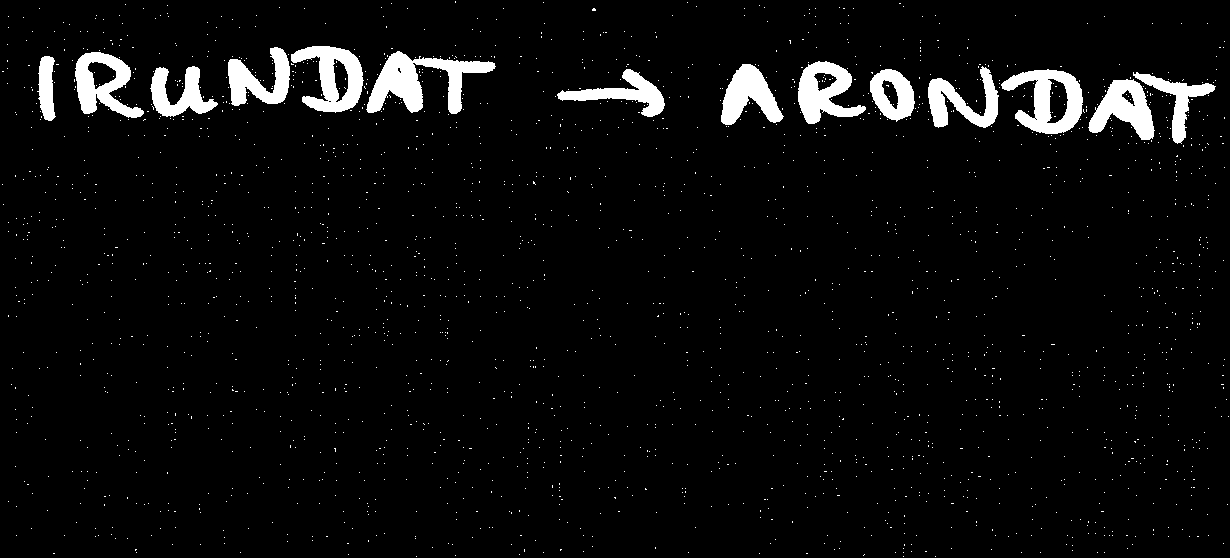 IRUNDAT → ARONDAT